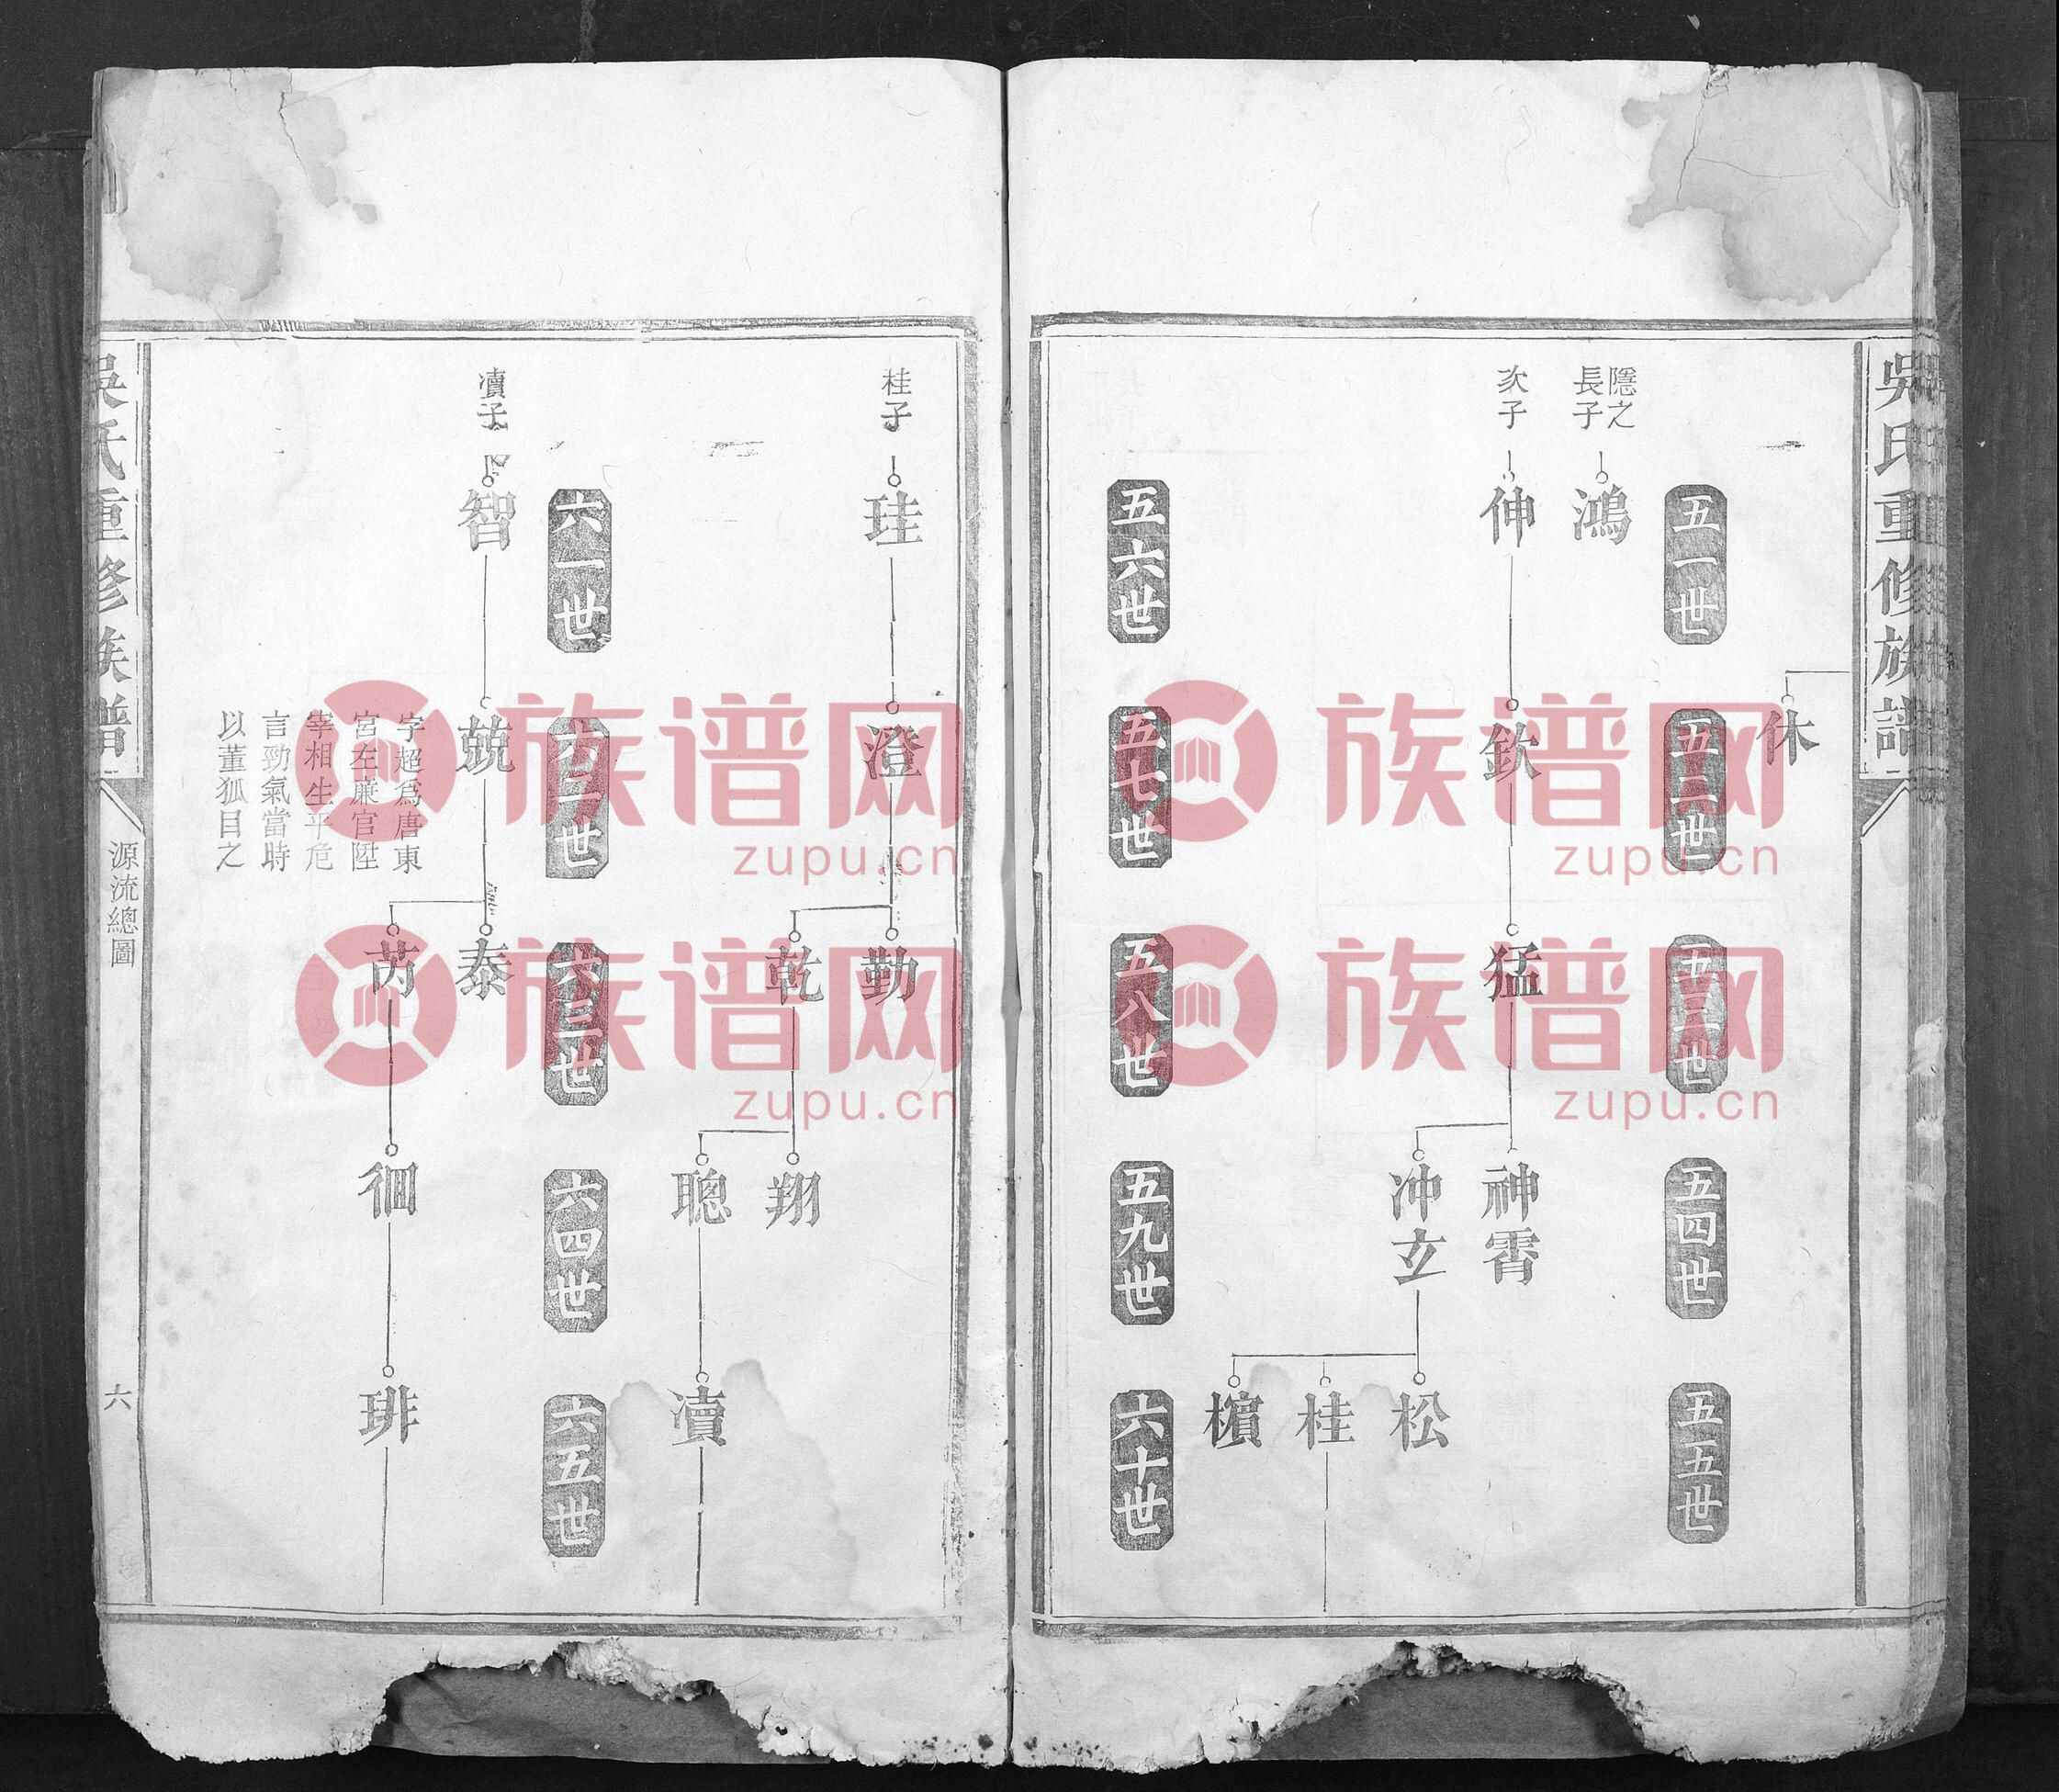 吳氏重修族譜
休
五一世
五二世
五三世
五四世
五五世
隱之
長子
鴻
次子
伸
欽
猛
神霄
冲立
松
桂
檳
五六世
五七世
五八世
五九世
六十世
桂子
珪
澄
勤
乾
翔
聰
瀆
六一世
六二世
六三世
六四世
六五世
瀆子
智
兢
泰
芮
徊
琲
字超爲唐東
宮左庶官陞
宰相生平危
言勁氣當時
以董狐目之
吳氏重修族譜
源流總圖
六
族谱网
zupu.cn
族谱网
zupu.cn
族谱网
zupu.cn
族谱网
zupu.cn